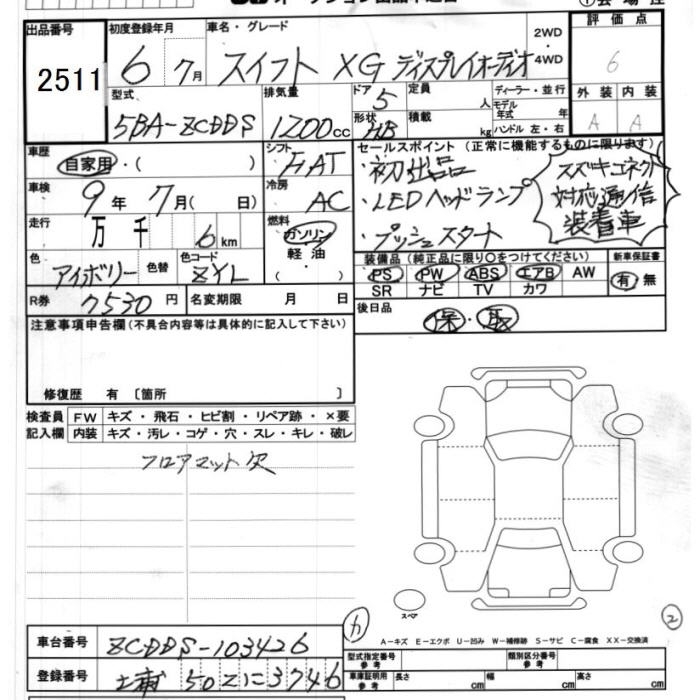 出品番号 初度登録年月 車名・グレード 2WD・4WD 評価点
2511 6 7月 スイフト XG ディスプレイオーディオ 6
型式 排気量 ドア 定員 ディーラー・並行 外装 内装
5BA-ZCDDS 1200cc 5 人 モデル年式 年 A A
形状 積載 ハンドル 左・右
HB kg
車歴 シフト セールスポイント (正常に機能するものに限ります)
自家用・( ) FAT ・初出品
車検 冷房 ・LEDヘッドランプ
9年 7月( 日) AC ・プッシュスタート
スズキコネクト
対応通信
装着車
走行 万 千 6km 燃料 ガソリン・軽油・( )
色 アイボリー 色替 色コード ZYL
装備品 (純正品に限り○をつけてください) 新車保証書
PS PW ABS エアB AW 有・無
SR ナビ TV カワ
R券 7530円 名変期限 月 日
後日品 保・取
注意事項申告欄 (不具合内容等は具体的に記入して下さい)
修復歴 有 〔箇所 〕
検査員記入欄 FW キズ・飛石・ヒビ割・リペア跡・×要
内装 キズ・汚レ・コゲ・穴・スレ・キレ・破レ
フロアマット欠
スペア
A-キズ E-エクボ U-凹み W-補修跡 S-サビ C-腐食 XX-交換済
2
車台番号 ZCDDS-103426
型式指定番号 参考 類別区分番号 参考
登録番号 502に3746
車庫証明用 参考 長さ cm 幅 cm 高さ cm